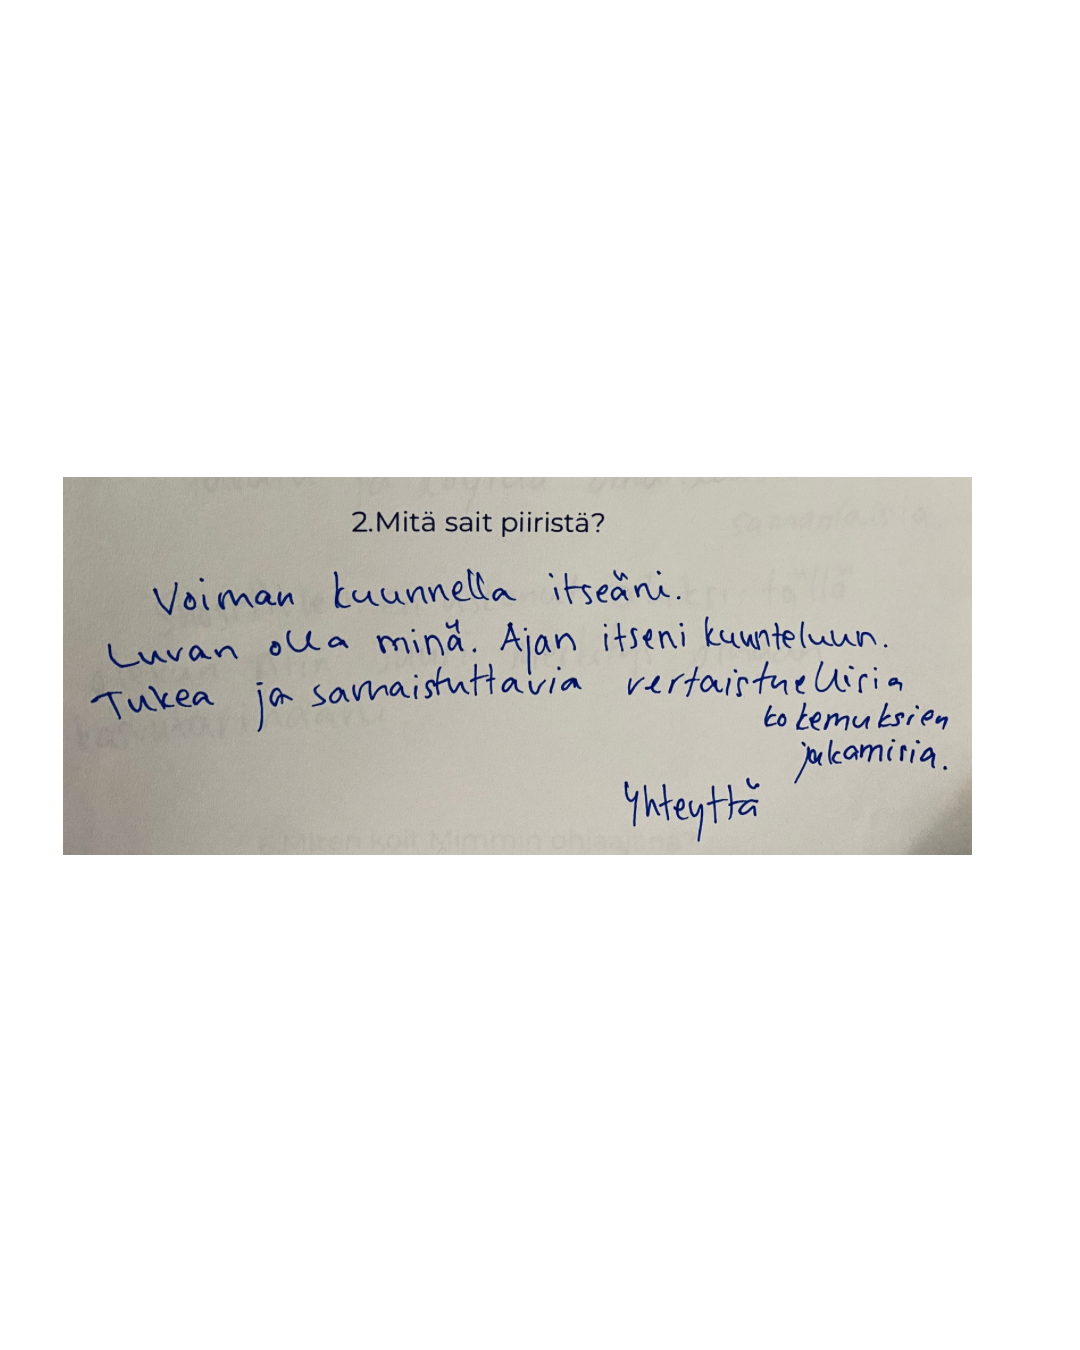 2.Mitä sait piiristä?
Voiman kuunnella itseäni.
Luvan olla minä. Ajan itseni kuunteluun.
Tukea ja samaistuttavia vertaistuellisia
kokemuksien
jakamisia.
Yhteyttä